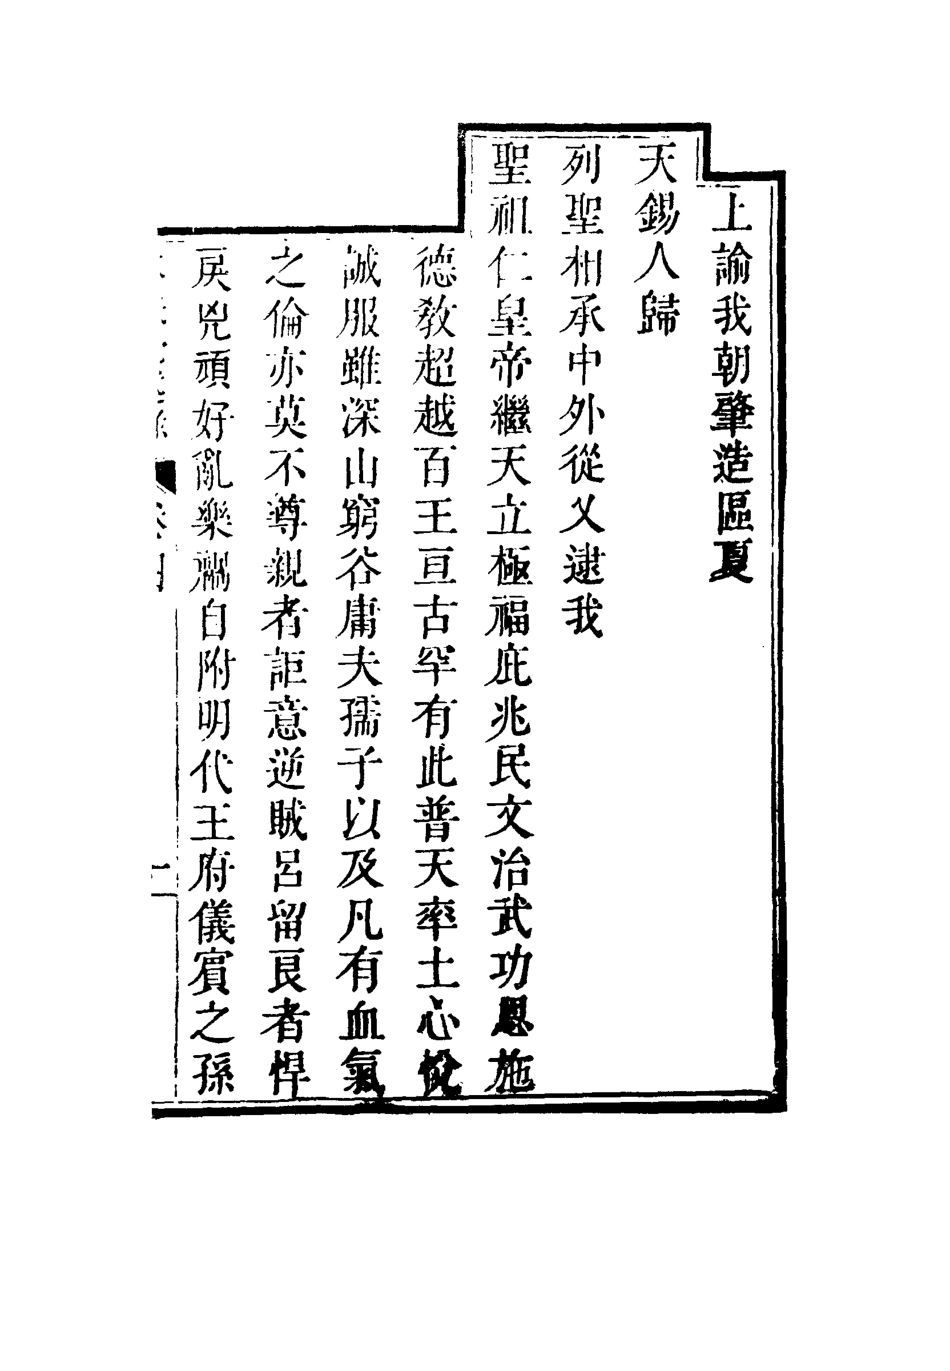 上諭我朝肇造區夏
天錫人歸
列聖相承中外從乂逮我
聖祖仁皇帝繼天立極福庇兆民文治武功恩施
德教超越百王亘古罕有此普天率土心悅
誠服雖深山窮谷庸夫孺子以及凡有血氣
之倫亦莫不尊親者詎意逆賊呂留良者悍
戾兇頑好亂樂禍自附明代王府儀賓之孫
卷四